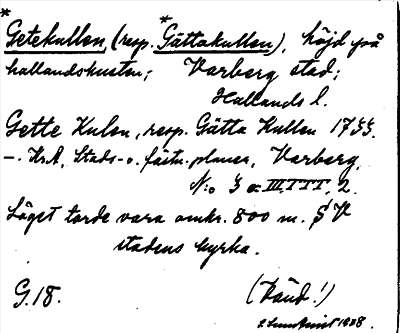 *Getekullen, (resp. *Gättakullen), höjd på
hallandskusten; Varberg, stad;
Hallands l.
Gette Kulen, resp. Gätta Kullen 1733.
–. Kr.A, Stads- o. fästn. planer, Varberg,
N:o 3 a III, 2.
Läget torde vara omkr. 800 m. S V
stadens kyrka.
G. 18. (Känd!)
1928.